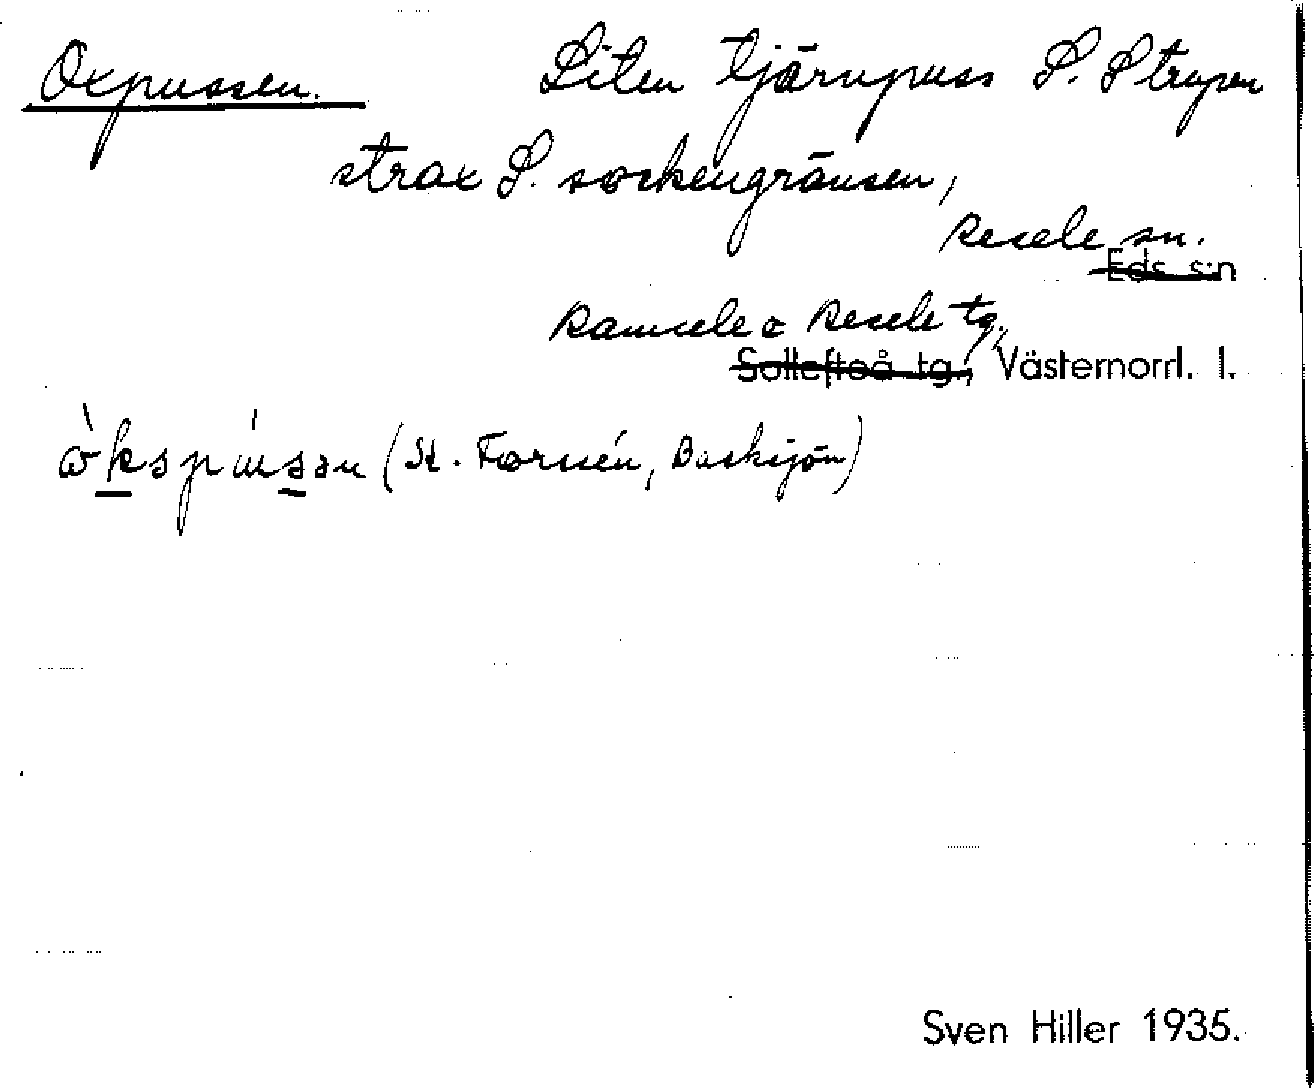 Oxpussen. Liten tjärnpuss S. Strupen
strax S. sockengränsen,
Resele sn.
Eds s:n
Ramsele o Resele tg.,
Sollefteå tg., Västernorrl. l.
(St. Forssén, Backsjön)
Sven Hiller 1935.